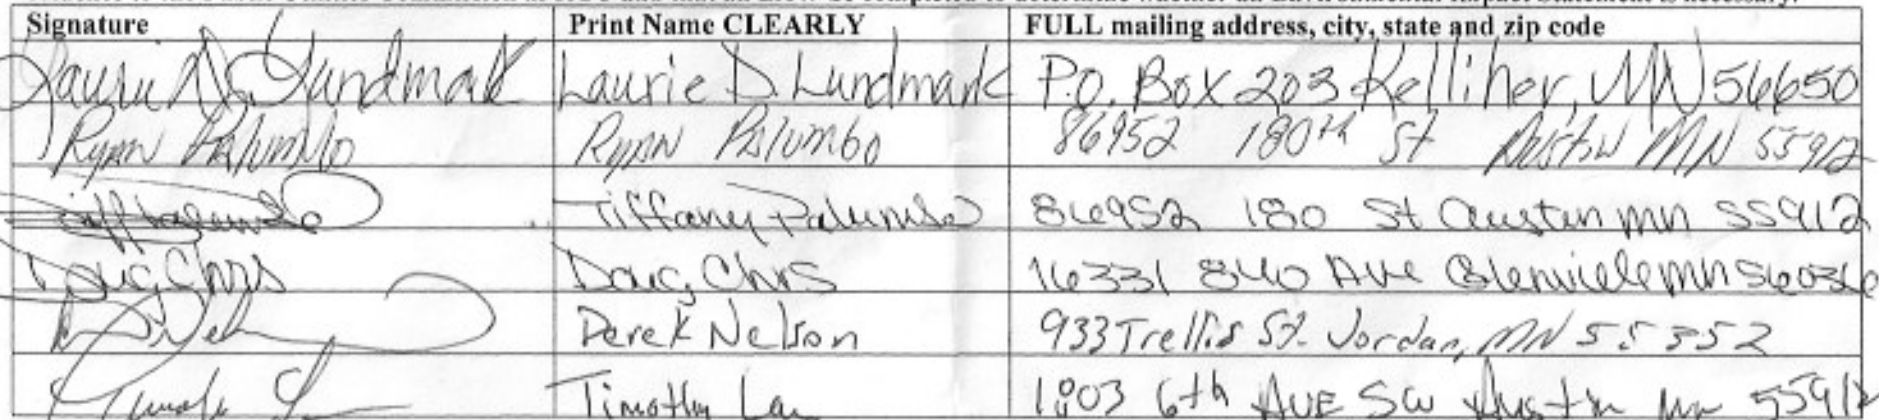 Signature Print Name CLEARLY FULL mailing address, city, state and zip code
Laurie D. Lundmark Laurie D. Lundmark P.O. Box 203 Kelliher, MN 56650
Ryan Palumbo Ryan Palumbo 86952 180th St Austin MN 55912
Tiffany Palumbo 86952 180 St Austin mn 55912
Doug Chrs Doug Chrs 16331 840 Ave Glenville mn 56036
Derek Nelson 933 Trellis St. Jordan, MN 55352
Timothy 1803 6th AVE SW Austin mn 55912